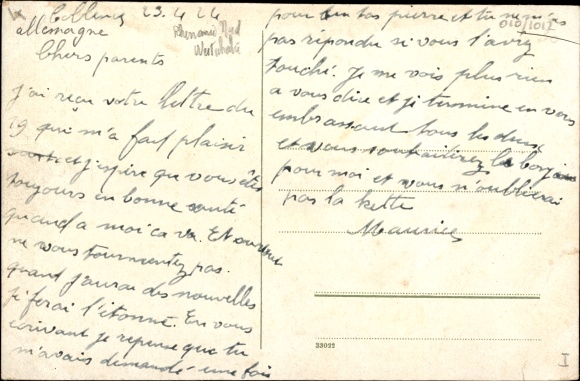 Coblence 23.4.24
allemagne
Rhénanie Nord
Westphalie
Chers parents
J'ai reçu votre lettre du
19 qui m'a fait plaisir
et j'espère que vous êtes
toujours en bonne santé
quand a moi ca va. Et surtout
ne vous tourmentez pas.
quant j'aurai des nouvelles
je ferai l'étonné. En vous
écrivant je repense que tu
m'avais demandé une fois
pour ton tas pierre et tu ne m'as
010/1017
pas répondu si vous l'avez
touché. Je me vois plus rien
a vous dire et je termine en vous
embrassant tous les deux
et vous souhaiterez le bonjour
pour moi et vous n'oublierai
pas la kette
Maurice
23021
I